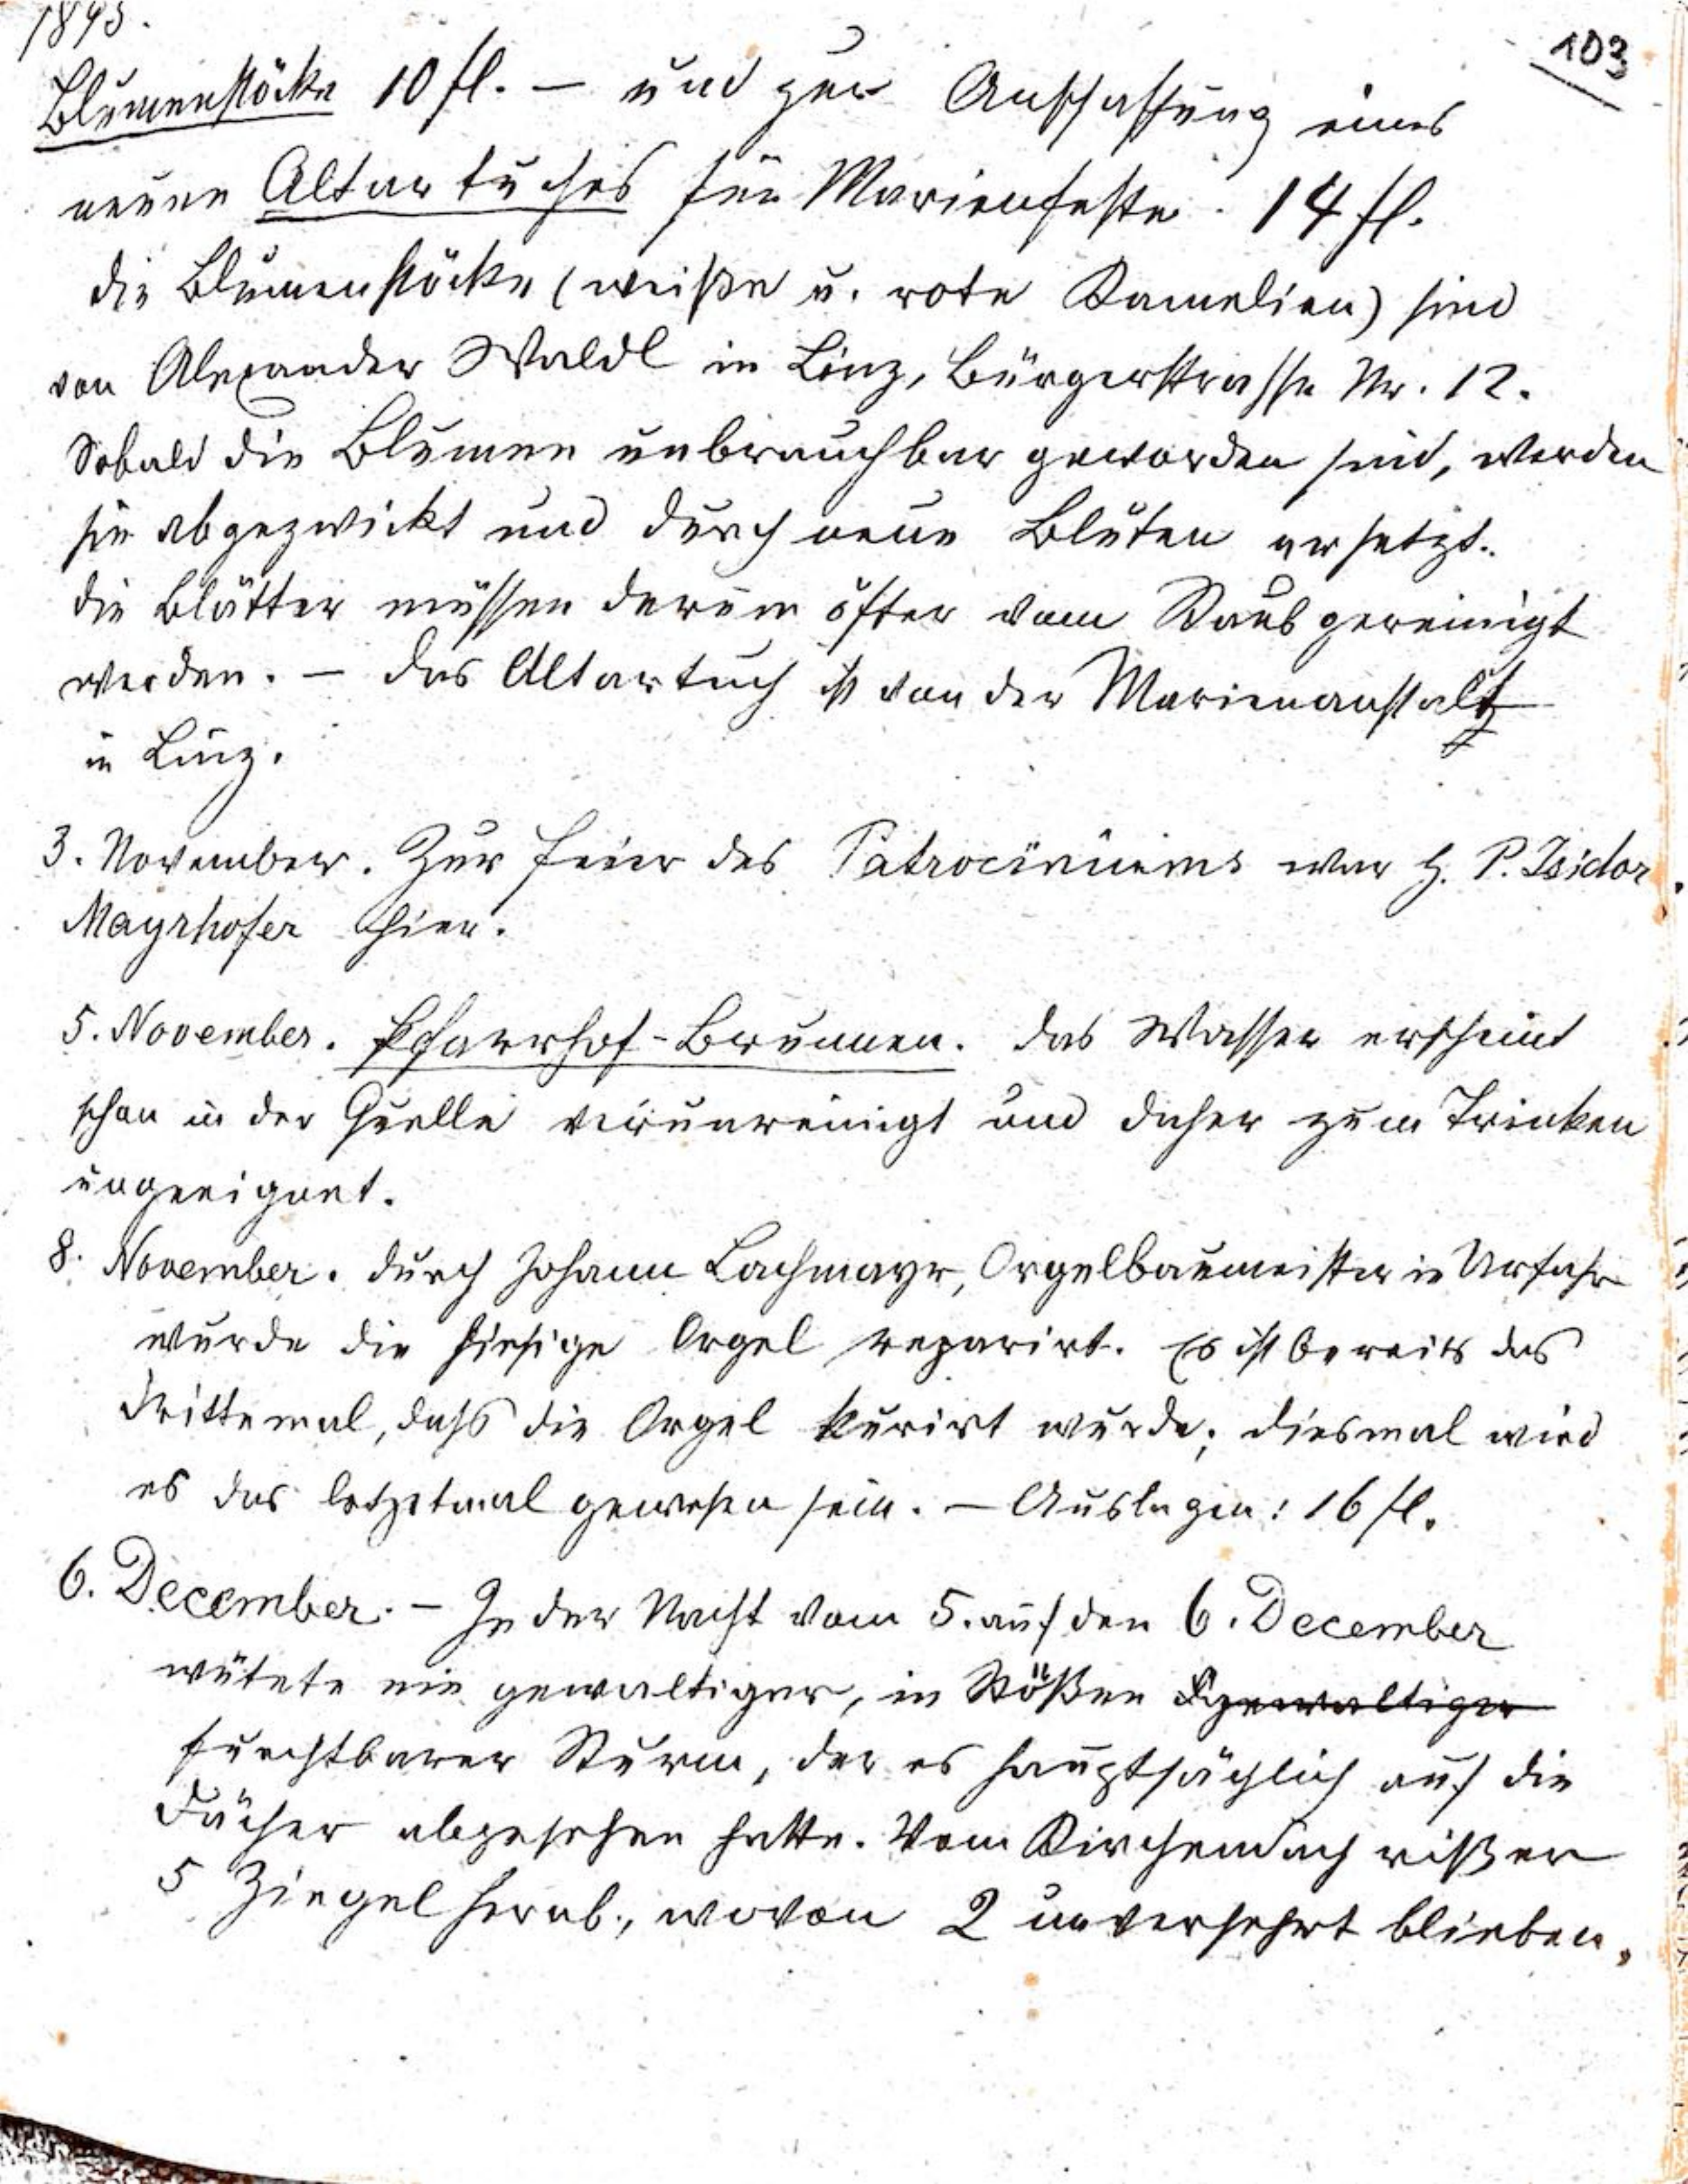 1895.
103
Blumenstöcke 10 fl. – und zur Anschaffung eines
neuen Altartuches für Marienfeste. 14 fl.
die Blumenstöcke (weiße u. rote Kamelien) sind
von Alexander Waldl in Linz, Bürgerstrasse Nr. 12.
Sobald die Blumen unbrauchbar geworden sind, werden
sie abgezwickt und durch neue Blüten ersetzt.
die Blätter müssen darum öfter vom Staub gereinigt
werden. – das Altartuch ist von der Marienanstalt
in Linz.
3. November. Zur Feier des Patrociniums war H. P. Isidor
Mayrhofer hier.
5. November. Pfarrhof-Brunnen. das Wasser erscheint
schon in der Quelle verunreinigt und daher zum Trinken
ungeeignet.
8. November. durch Johann Lachmayr, Orgelbaumeister in Urfahr
wurde die hiesige Orgel reparirt. Es ist bereits das
drittemal, daß die Orgel kurirt wurde; diesmal wird
es das letztemal gewesen sein. – Auslagen: 16 fl.
6. December. – In der Nacht vom 5. auf den 6. December
wütete ein gewaltiger, in Stößen gewaltiger
furchtbarer Sturm, der es hauptsächlich auf die
Dächer abgesehen hatte. Vom Kirchendach riß er
5 Ziegel herab, wovon 2 unversehrt blieben.